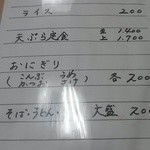 ライス 200
天ぷら定食 並 1.400
上 1.700
おにぎり
(こんぶ うめ
かつお さけ) 各 200
そば・うどん・ 大盛 200